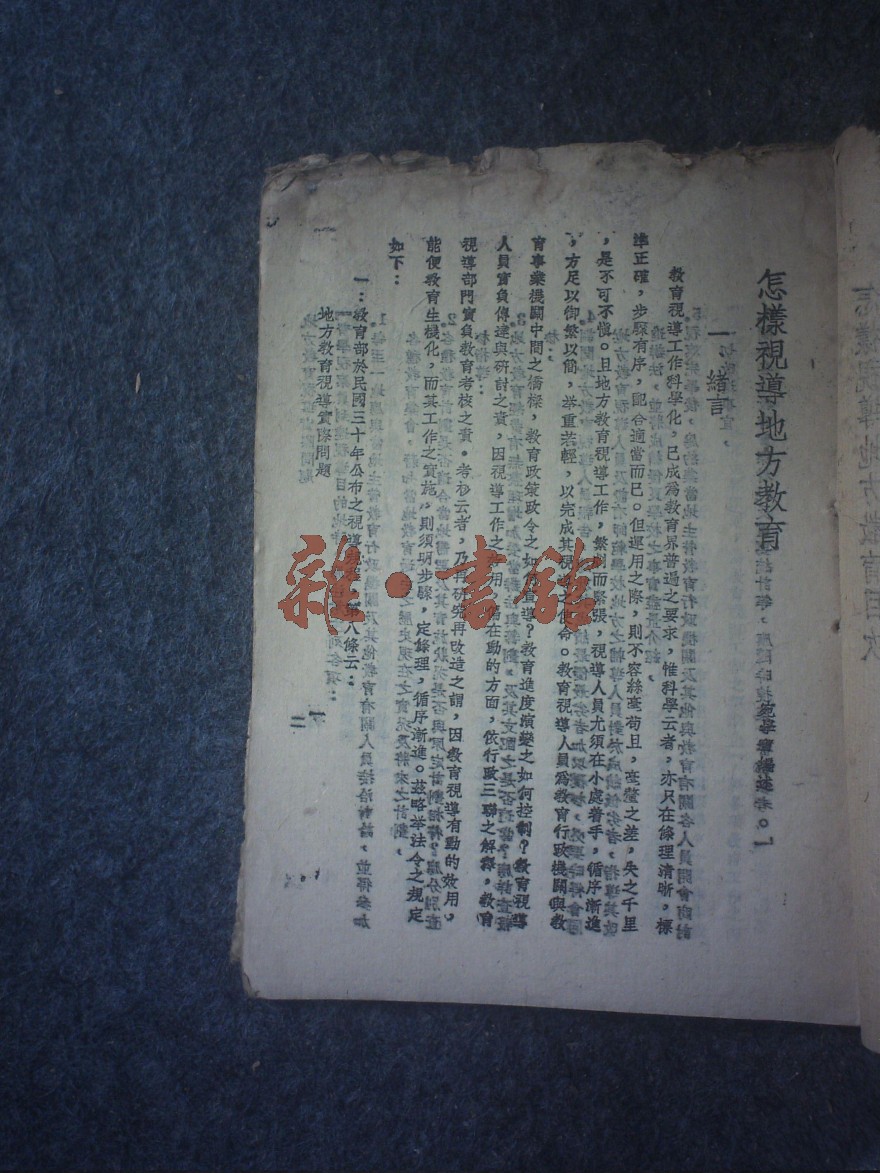 怎樣視導地方教育
一 緒言
教育視導工作科學化,已成為教育界普遍之要求,惟科學云者,亦只在條理清晰,標
準正確,步驟有序,配合適當而已。但運用之際,則不容絲毫苟且,毫釐之差,失之千里
,是不可不慎。且地方教育視導工作,繁劇而緊張,視導人員尤須在小處着手,循序漸進
,方足以御繁以簡,舉重若輕,以完成其視導之使命。教育視導人員為教育行政機關與教
育事業機關中間之橋樑,教育政策政令之如何宣導?教育進度演變之如何控制?教育視導
人員實負傳達與研討之責,因視導工作之作用,偏在動的方面,依行政三聯之解釋,教育
視導部門實負教育考核之責。考核云者,乃再研究再改造之謂,因教育視導有動的效用,
能使教育生機化,而其工作之實施,則須明步驟,定條理,循序漸進。茲略举法令之規定
如下:
一:教育部於民國三十年公布之視導規程 第八條云:
地方教育視導實際問題
一
雜·書館